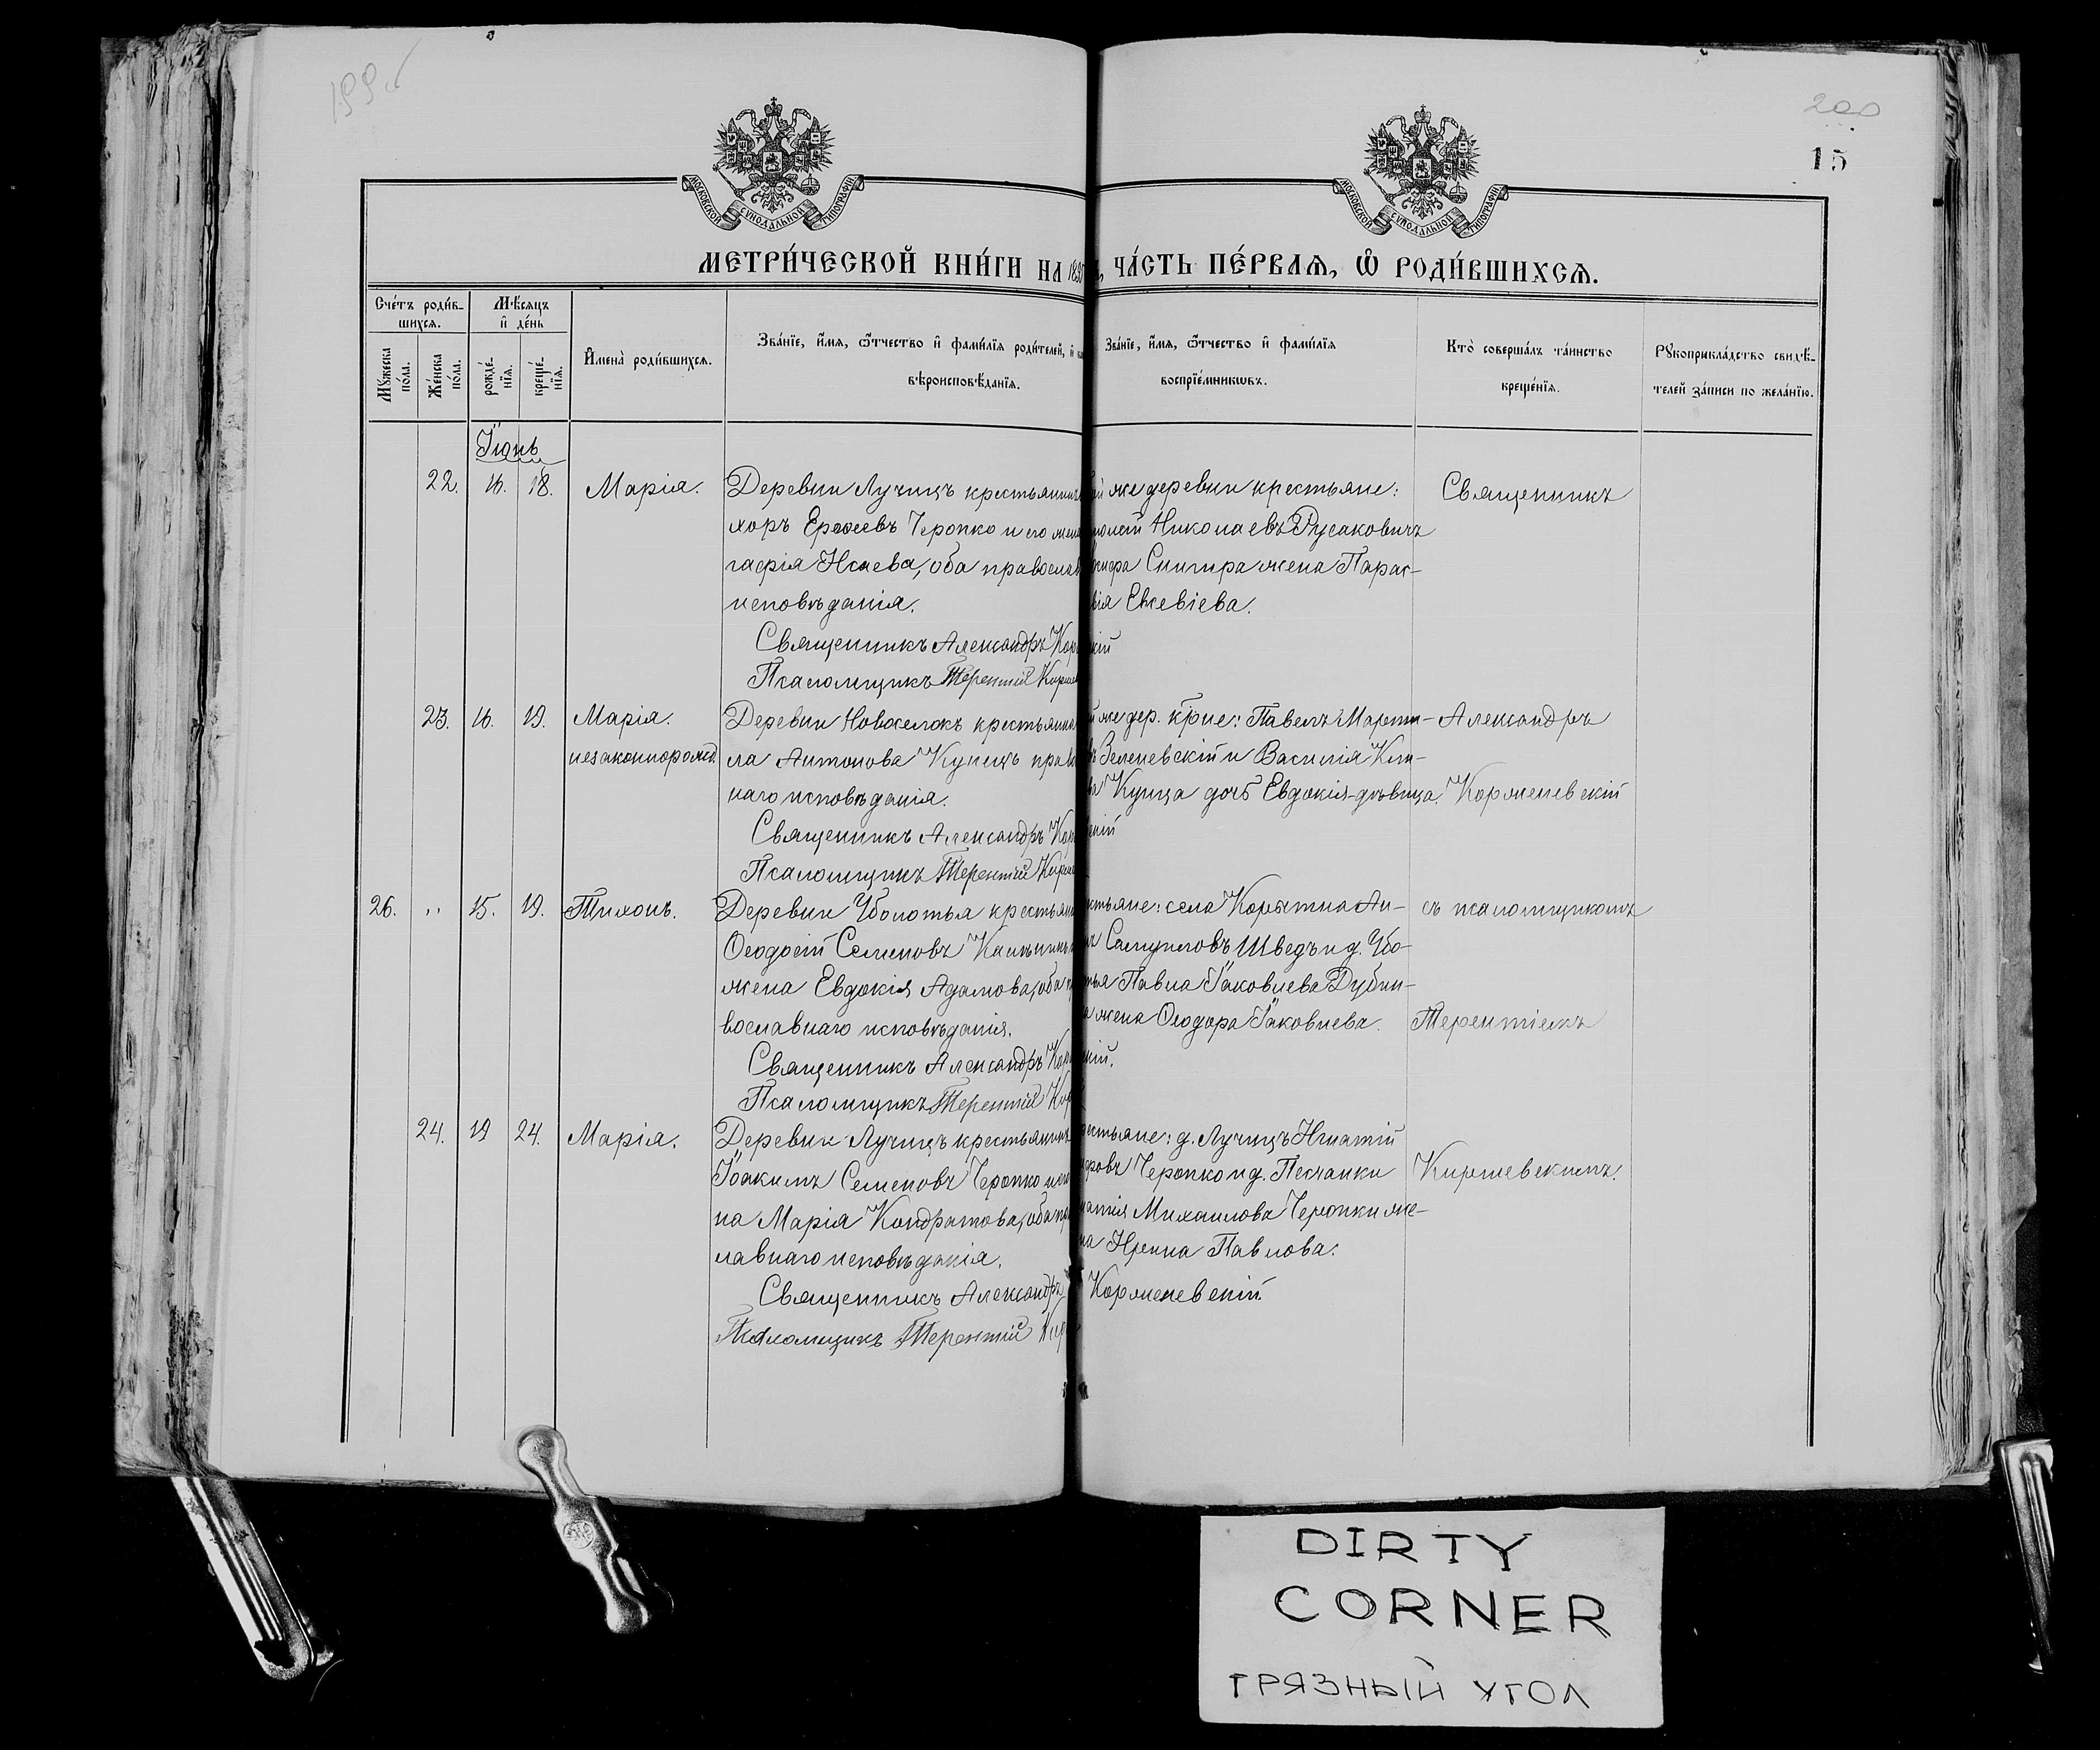 199об
200
15
МОСКОВСКОЙ СѴНОДАЛЬНОЙ ТИПОГРАФІИ
МОСКОВСКОЙ СѴНОДАЛЬНОЙ ТИПОГРАФІИ
МЕТРИ́ЧЕСКОЙ КНИ́ГИ НА
ЧА́СТЬ ПЕ́РВАЯ, Ѡ҆ РОДИ́ВШИХСЯ.
Сче́тъ роди́в-
шихся.
Мѣ́сяцъ
и҆ де́нь
Мꙋ́жеска по́ла.
Же́нска по́ла.
рожде́-
нїя.
креще́-
нїя.
И҆мена̀ роди́вшихся.
Зва́нїе, и҆́мя, ѻ҆́тчество и҆ фами́лїя роди́телей, и҆
вѣроисповѣ́данїя.
Зва́нїе, и҆́мя, ѻ҆́тчество и҆ фами́лїя
воспрїе́мникѡвъ.
Кто̀ соверша́лъ та́инство
креще́нїя.
Рꙋкоприкла́дство свидѣ́-
телей за́писи по жела́нїю.
Іюнь
22. 16. 18. Марія.
Деревни Лучицъ крестьянинъ
хоръ Ерофеевъ Черопко и его жена
гафія Исаева, оба православ
исповѣданія.
Священникъ Александръ Кор
Псаломщикъ Терентій Кирше
же деревни крестьяне:
Николаевъ Русаковичъ
Снитра жена Парас-
Евсевіева.
скій
Священникъ
23. 16. 19. Марія.
незаконнорожд.
Деревни Новоселокъ крестьянка
ла Антонова Купецъ прав
наго исповѣданія.
Священникъ Александръ Кор
Псаломщикъ Терентій Кирше
же дер. крне: Павелъ Марти-
въ Зеленевскій и Василія Кли-
ва Купца дочь Евдокія-дѣвица.
скій
Александръ
Корженевскій
26. " 15. 19. Тихонъ.
Деревни Уболотья крестьянинъ
Ѳеодосій Семеновъ
жена Евдокія Адамова, оба п
вославнаго исповѣданія.
Священникъ Александръ Кор
Псаломщикъ Терентій Кир
стьяне: села Корятна Ан-
Самуиловъ Шведъ и д. Убо-
тья Павла Іаковлева Дубин-
а жена Ѳеодора Іаковлева.
скій.
съ псаломщикомъ
Терентіемъ
24. 19 24. Марія.
Деревни Лучицъ крестьянинъ
Іоакимъ Семеновъ Черопко и его
на Марія Кондратова, оба пра
лавнаго исповѣданія.
Священникъ Александръ
Псаломщикъ Терентій Кир
рестьяне: д. Лучицъ Игнатій
дровъ Черопко и д. Песчанки
натія Михаилова Черопки же-
на Ирина Павлова.
Корженевскій
Киршевскимъ.
DIRTY
CORNER
ГРЯЗНЫЙ УГОЛ